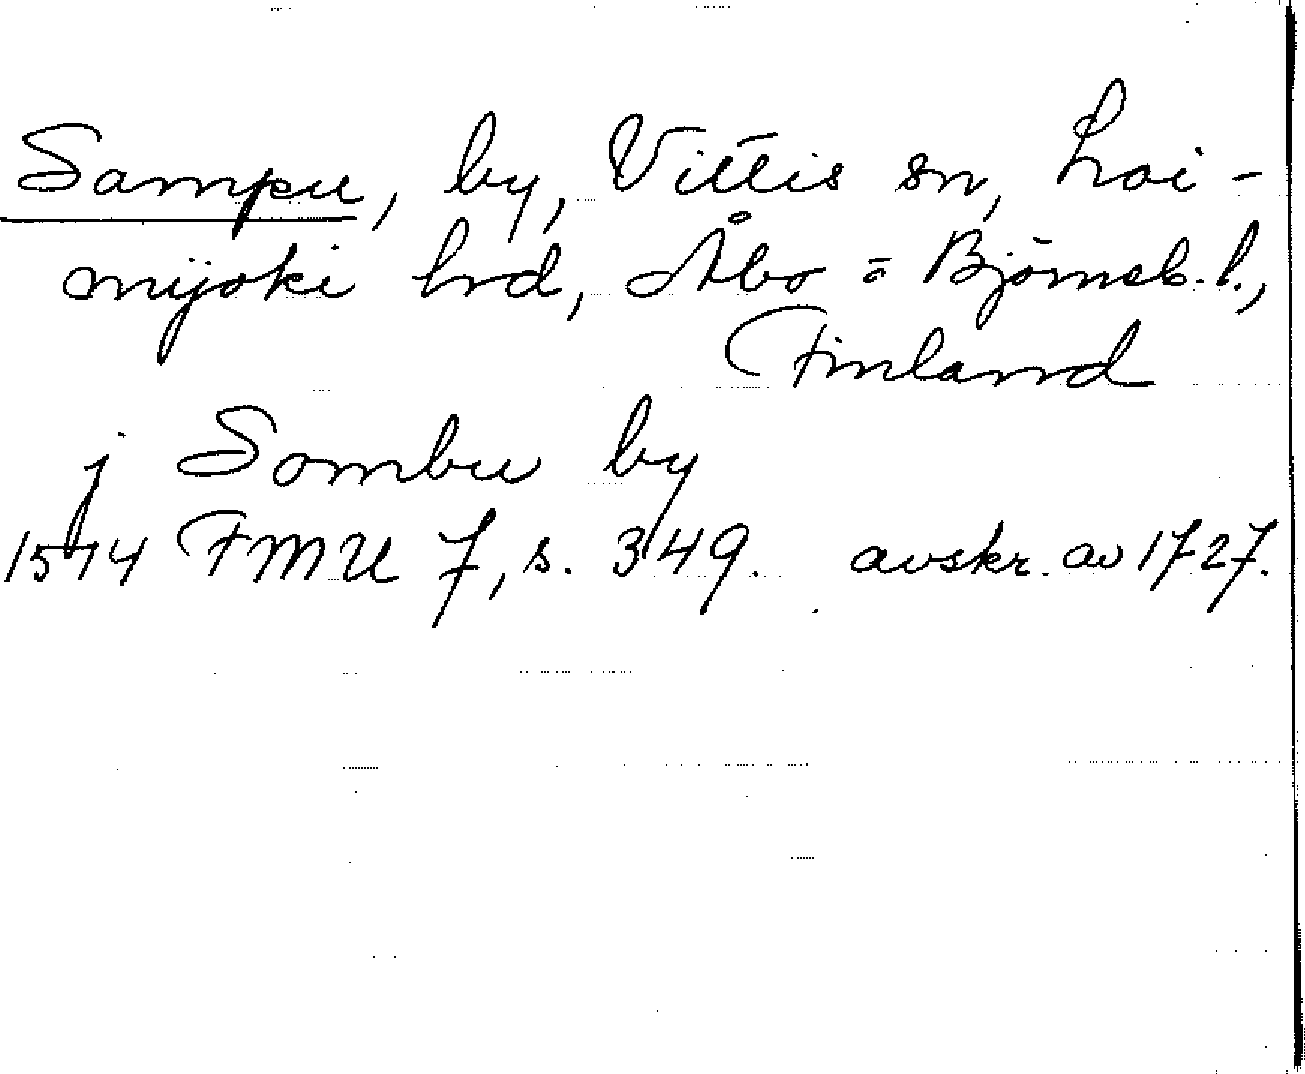 Sampu, by, Vittis sn, Loi-
mijoki hrd, Åbo = Björneb. l.,
Finland
j Sombu by
1514 FMU 7, s. 349. avskr. av 1727.